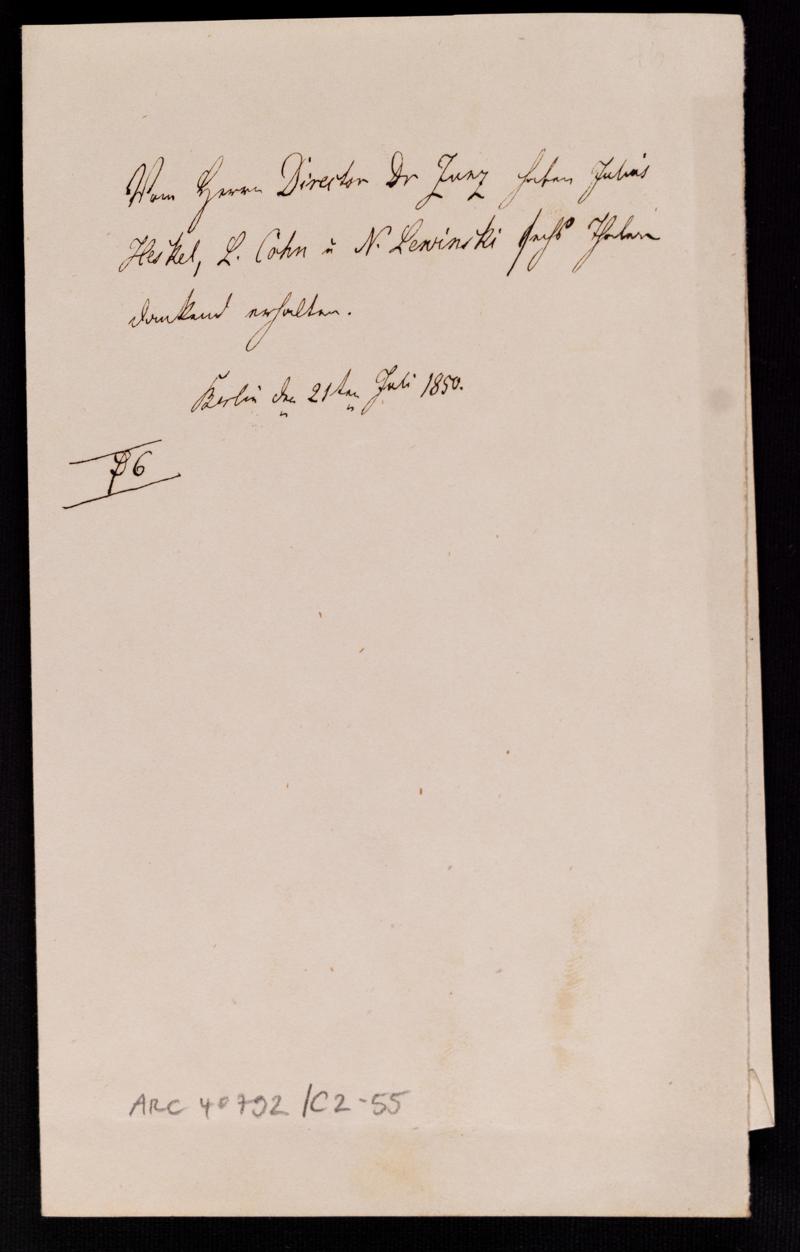 Vom Herrn Director Dr Zunz haben Julius
Heskel, L. Cohn u N. Lewinski sechs Thaler
dankend erhalten.
Berlin den 21ten Juli 1850.
6
ARC 40792 /C2-55